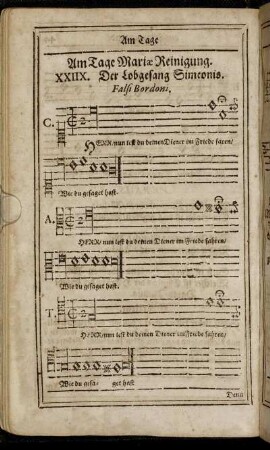 Am Tage
Am Tage Mariæ Reinigung.
XXIIX. Der Lobgesang Simeonis.
Falsi Bordoni,
C.
HERR/nun lest du deinen Diener im Friede faren/
Wie du gesaget hast.
A.
HERR/ nun lest du deinen Diener im Friede fahren/
Wie du gesaget hast.
T.
HERR/nun lest du deinen Diener im Friede fahren/
Wie du gesa- get hast
Dann